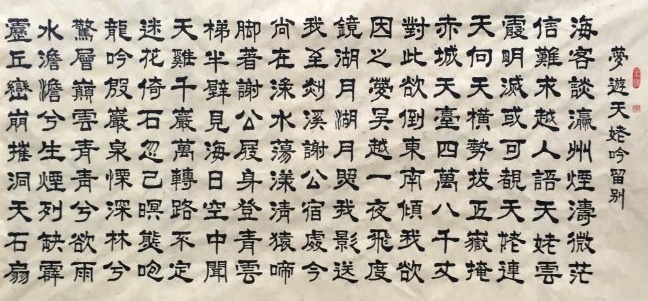 夢遊天姥吟留别
海客談瀛州煙濤微茫
信難求越人語天姥雲
霞明滅或可覩天姥連
天向天橫勢拔五嶽掩
赤城天臺四萬八千丈
對此欲倒東南傾我欲
因之夢吳越一夜飛度
鏡湖月湖月照我影送
我至剡溪謝公宿處今
尚在淥水蕩漾清猿啼
脚著謝公屐身登青雲
梯半壁見海日空中聞
天雞千巖萬轉路不定
迷花倚石忽已暝熊咆
龍吟殷巖泉慄深林兮
驚層巔雲青青兮欲雨
水澹澹兮生煙列缺霹
靂丘巒崩摧洞天石扇